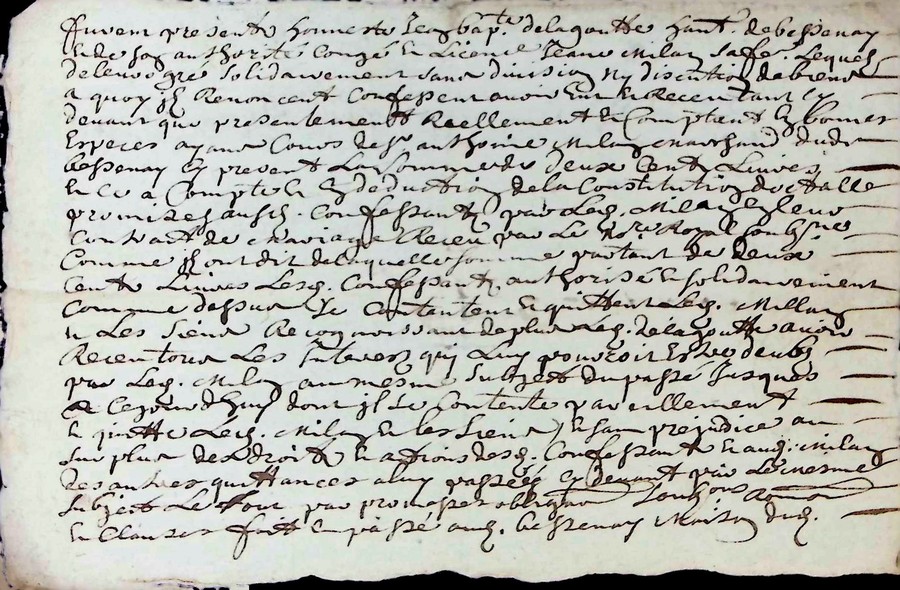 Furent presents honneste Jean bap.te delagoutte hant. de bessenay
& de son authorité Congé & Licence Jeane Milan sa fe. Lequels
de leur gré solidairement sans division ny discution de biens
a quoy ils Renoncent Confessent avoir Eu & Receu tant Cy
devant que presentement Reellement & Comptant En bonnes
Especes ayant Cours de sr. anthoine Milan marchand dudt
bessenay Cy present La somme de deux Cents Livres
& Ce a Compte & En deduction de la Constitution dotalle
promise ausd. Confessants par Led. Milan En leur
Contrat de mariage Receu par Le No.re Royal soubsne
Comme Ils ont dit de laquelle somme partant de deux
Cents Livres Lesd. Confessants authorisé & solidairement
Comme dessus se Contentent & quittent Led. Millan
& Les siens Recognoissant de plus Led. Delagoutte avoir
Receu tous Les Interest quy Luy pouvoit Estre deubs
par Led. Milan au mesme Subject du passé Jusques
a Cejourdhuy dont il se Contente pareillement
& quitte Led. Milan & les siens & sans prejudice au
surplus des droits & actions desd. Confessants & aud. Milan
des autres quittances a luy passées Cy devant par Le mesme
Subject Le tout par promesses obligaon Soubzons Renon
& Clauses fait & passé aud. bessenay Maison dud.